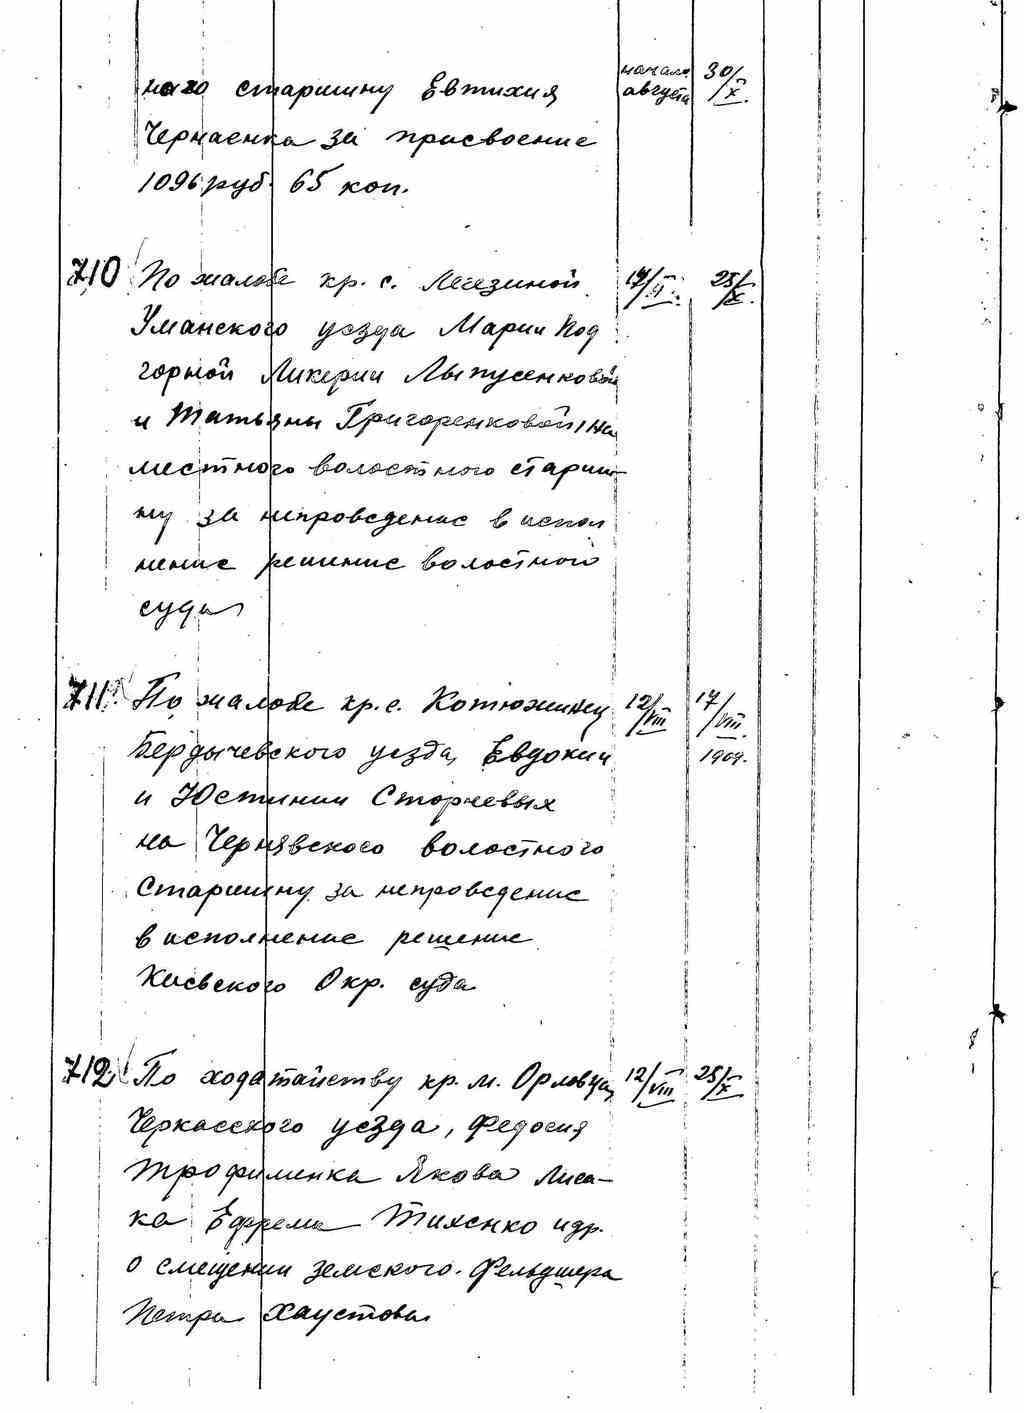 ного старшину Евтихия начало августа 30/X.
Чернаенка за присвоение
1096 руб. 65 коп.
710 По жалобе кр. с. Легезиной 28/X.
Уманского уезда Марии Под
горной Ликерии Лыпусенковой
и Татьяны Григоренковой, на
местного волостного старши-
ну за непроведение в испол
нение решение волостного
суда
711. По жалобе кр. с. Котюжинец 12/VIII 17/VIII.
Бердычевского уезда, Евдокии 1909.
и Юстинии Сторчевых
на Чернявского волостного
Старшину за непроведение
в исполнение решение
Киевского Окр. суда
712. По ходатайству кр. м. Орловца, 12/VIII 28/X
Черкасского уезда, Федосия
Трофименка Якова Лиса-
ка Ефрема Тихенко и др.
о смещении земского фельдшера
Петра Хаустова